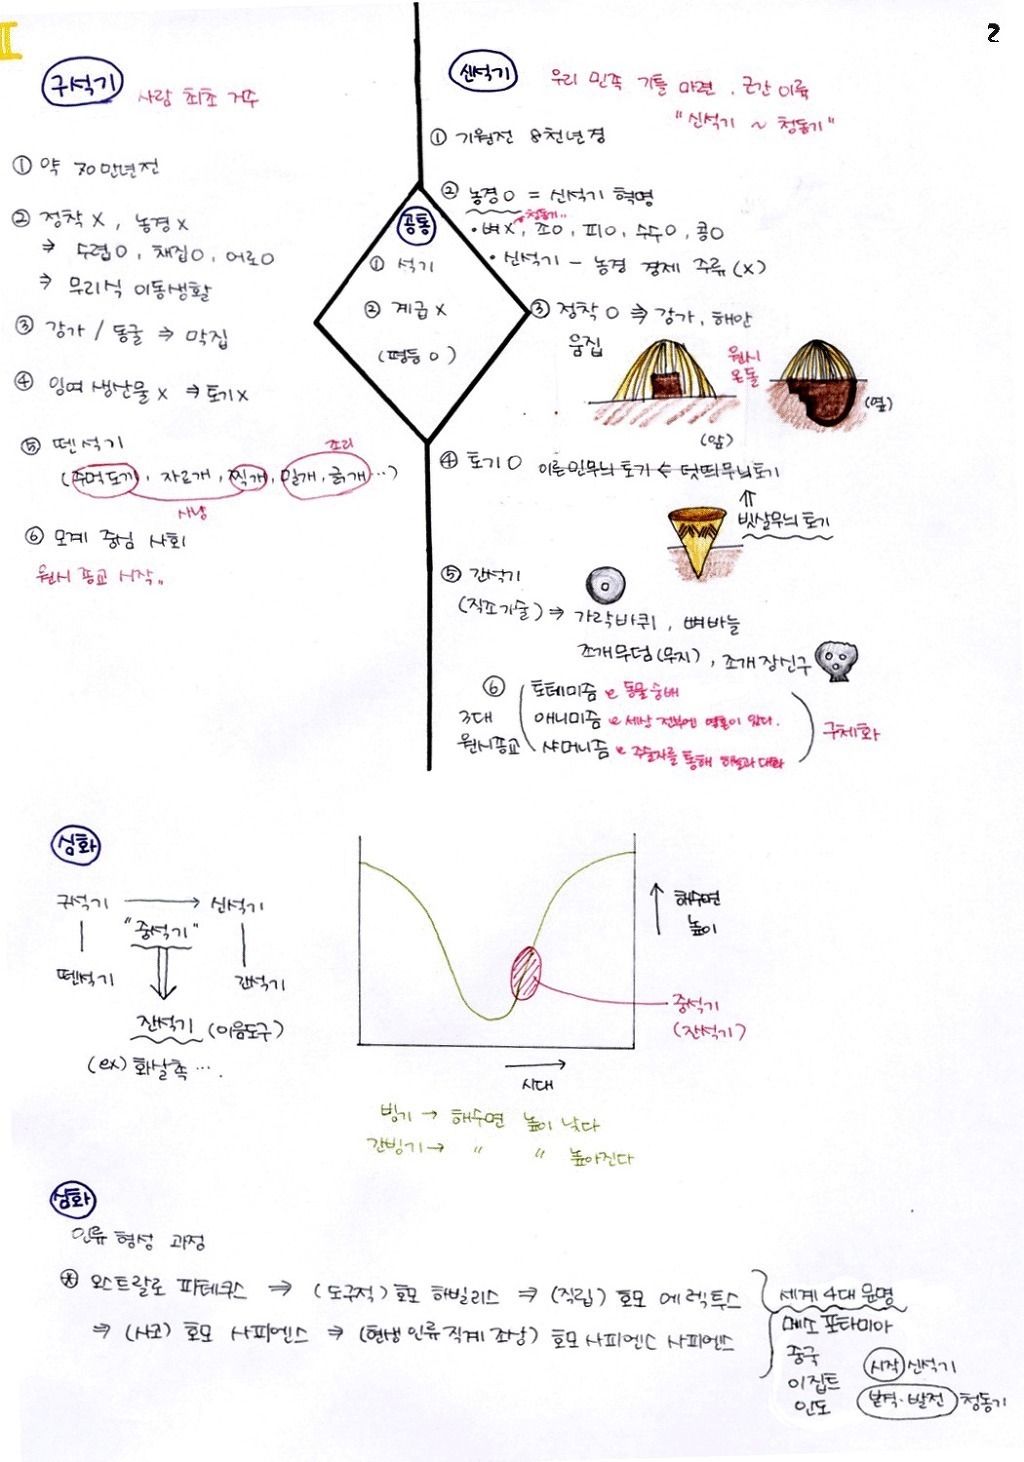 I
2
구석기
사람 최초 거주
① 약 70만년전
② 정착X, 농경X
⇒ 수렵O, 채집O, 어로O
⇒ 무리식 이동생활
③ 강가 / 동굴 ⇒ 막집
④ 잉여 생산물X ⇒ 토기X
⑤ 뗀석기
조리
(주먹도끼, 자르개, 찍개, 밀개, 긁개…)
사냥
⑥ 모계 중심 사회
원시 종교 시작..
공통
① 석기
② 계급X
(평등O)
신석기
우리 민족 기틀 마련, 근간 이룩
"신석기 ~ 청동기"
① 기원전 8천년경
② 농경O = 신석기 혁명
청동기..
·벼X, 조O, 피O, 수수O, 콩O
·신석기 – 농경 경제 주류(X)
③ 정착O ⇒ 강가, 해안
움집
원시
온돌
(앞)
(옆)
④ 토기O 이른민무늬토기 ← 덧띠무늬토기
⇑
빗살무늬토기
⑤ 간석기
(직조기술) ⇒ 가락바퀴, 뼈바늘
조개무덤(무지), 조개장신구
⑥
3대
원시종교
토테미즘 동물숭배
애니미즘 세상 전부에 영혼이 있다.
샤머니즘 주술자를 통해 하늘과 대화
구체화
심화
구석기 → 신석기
"중석기"
뗀석기
간석기
잔석기 (이음도구)
(ex) 화살촉 ….
해수면
높이
중석기
(잔석기)
시대
빙기 → 해수면 높이 낮다
간빙기 → 〃 〃 높아진다
심화
인류 형성 과정
* 오스트랄로 피테쿠스 ⇒ (도구적) 호모 하빌리스 ⇒ (직립) 호모 에렉투스
⇒ (사고) 호모 사피엔스 ⇒ (현생인류직계조상) 호모 사피엔스 사피엔스
세계 4대 문명
메소포타미아
중국
이집트
인도
시작 신석기
본격·발전 청동기